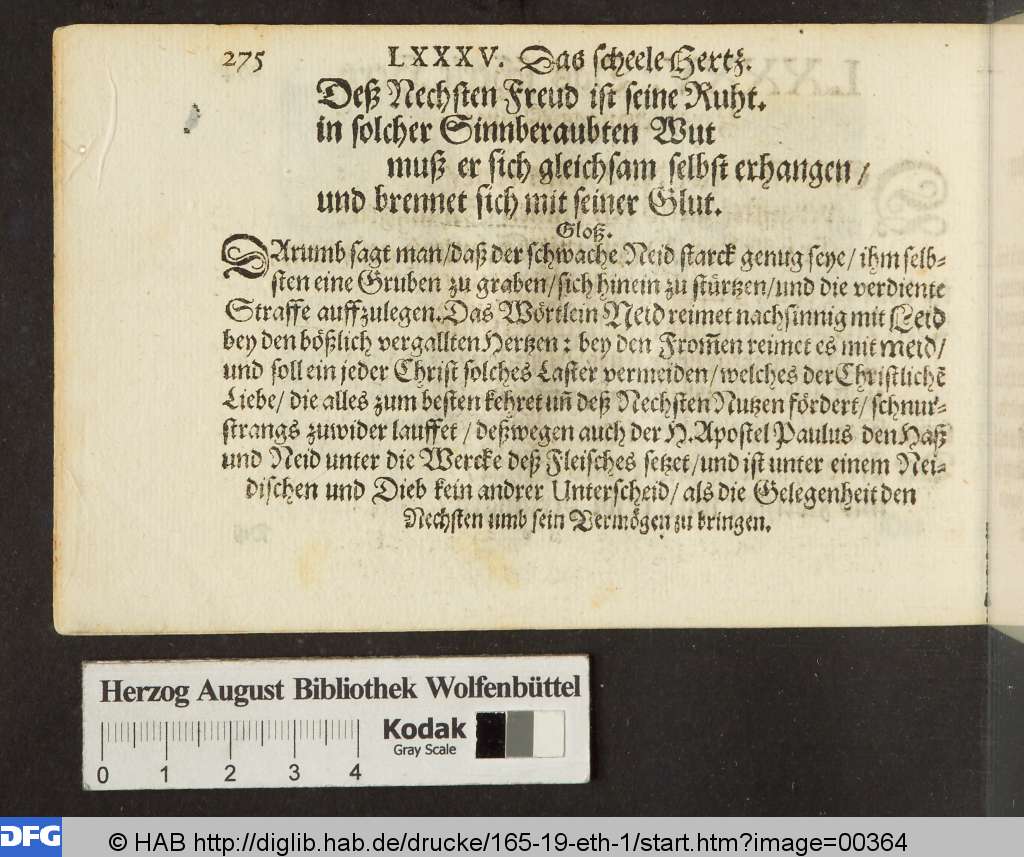 275 LXXXV. Das scheele Hertz.
Deß Nechsten Freud ist seine Ruht.
in solcher Sinnberaubten Wut
muß er sich gleichsam selbst erhangen /
und brennet sich mit seiner Glut.
Gloß.
DArumb sagt man/daß der schwache Neid starck genug seye/ ihm selb-
sten eine Gruben zu graben/sich hinein zu stürtzen/und die verdiente
Straffe auffzulegen. Das Wörtlein Neid reimet nachsinnig mit Leid
bey den bößlich vergallten Hertzen: bey den From̃en reimet es mit meid/
und soll ein jeder Christ solches Laster vermeiden/welches der Christlichẽ
Liebe/ die alles zum besten kehret uñ deß Nechsten Nutzen fördert/ schnur-
strangs zuwider lauffet / deßwegen auch der H. Apostel Paulus den Haß
und Neid unter die Wercke deß Fleisches setzet/und ist unter einem Nei-
dischen und Dieb kein andrer Unterscheid/ als die Gelegenheit den
Nechsten umb sein Vermögen zu bringen.
Herzog August Bibliothek Wolfenbüttel
Kodak
Gray Scale
0 1 2 3 4
DFG © HAB http://diglib.hab.de/drucke/165-19-eth-1/start.htm?image=00364